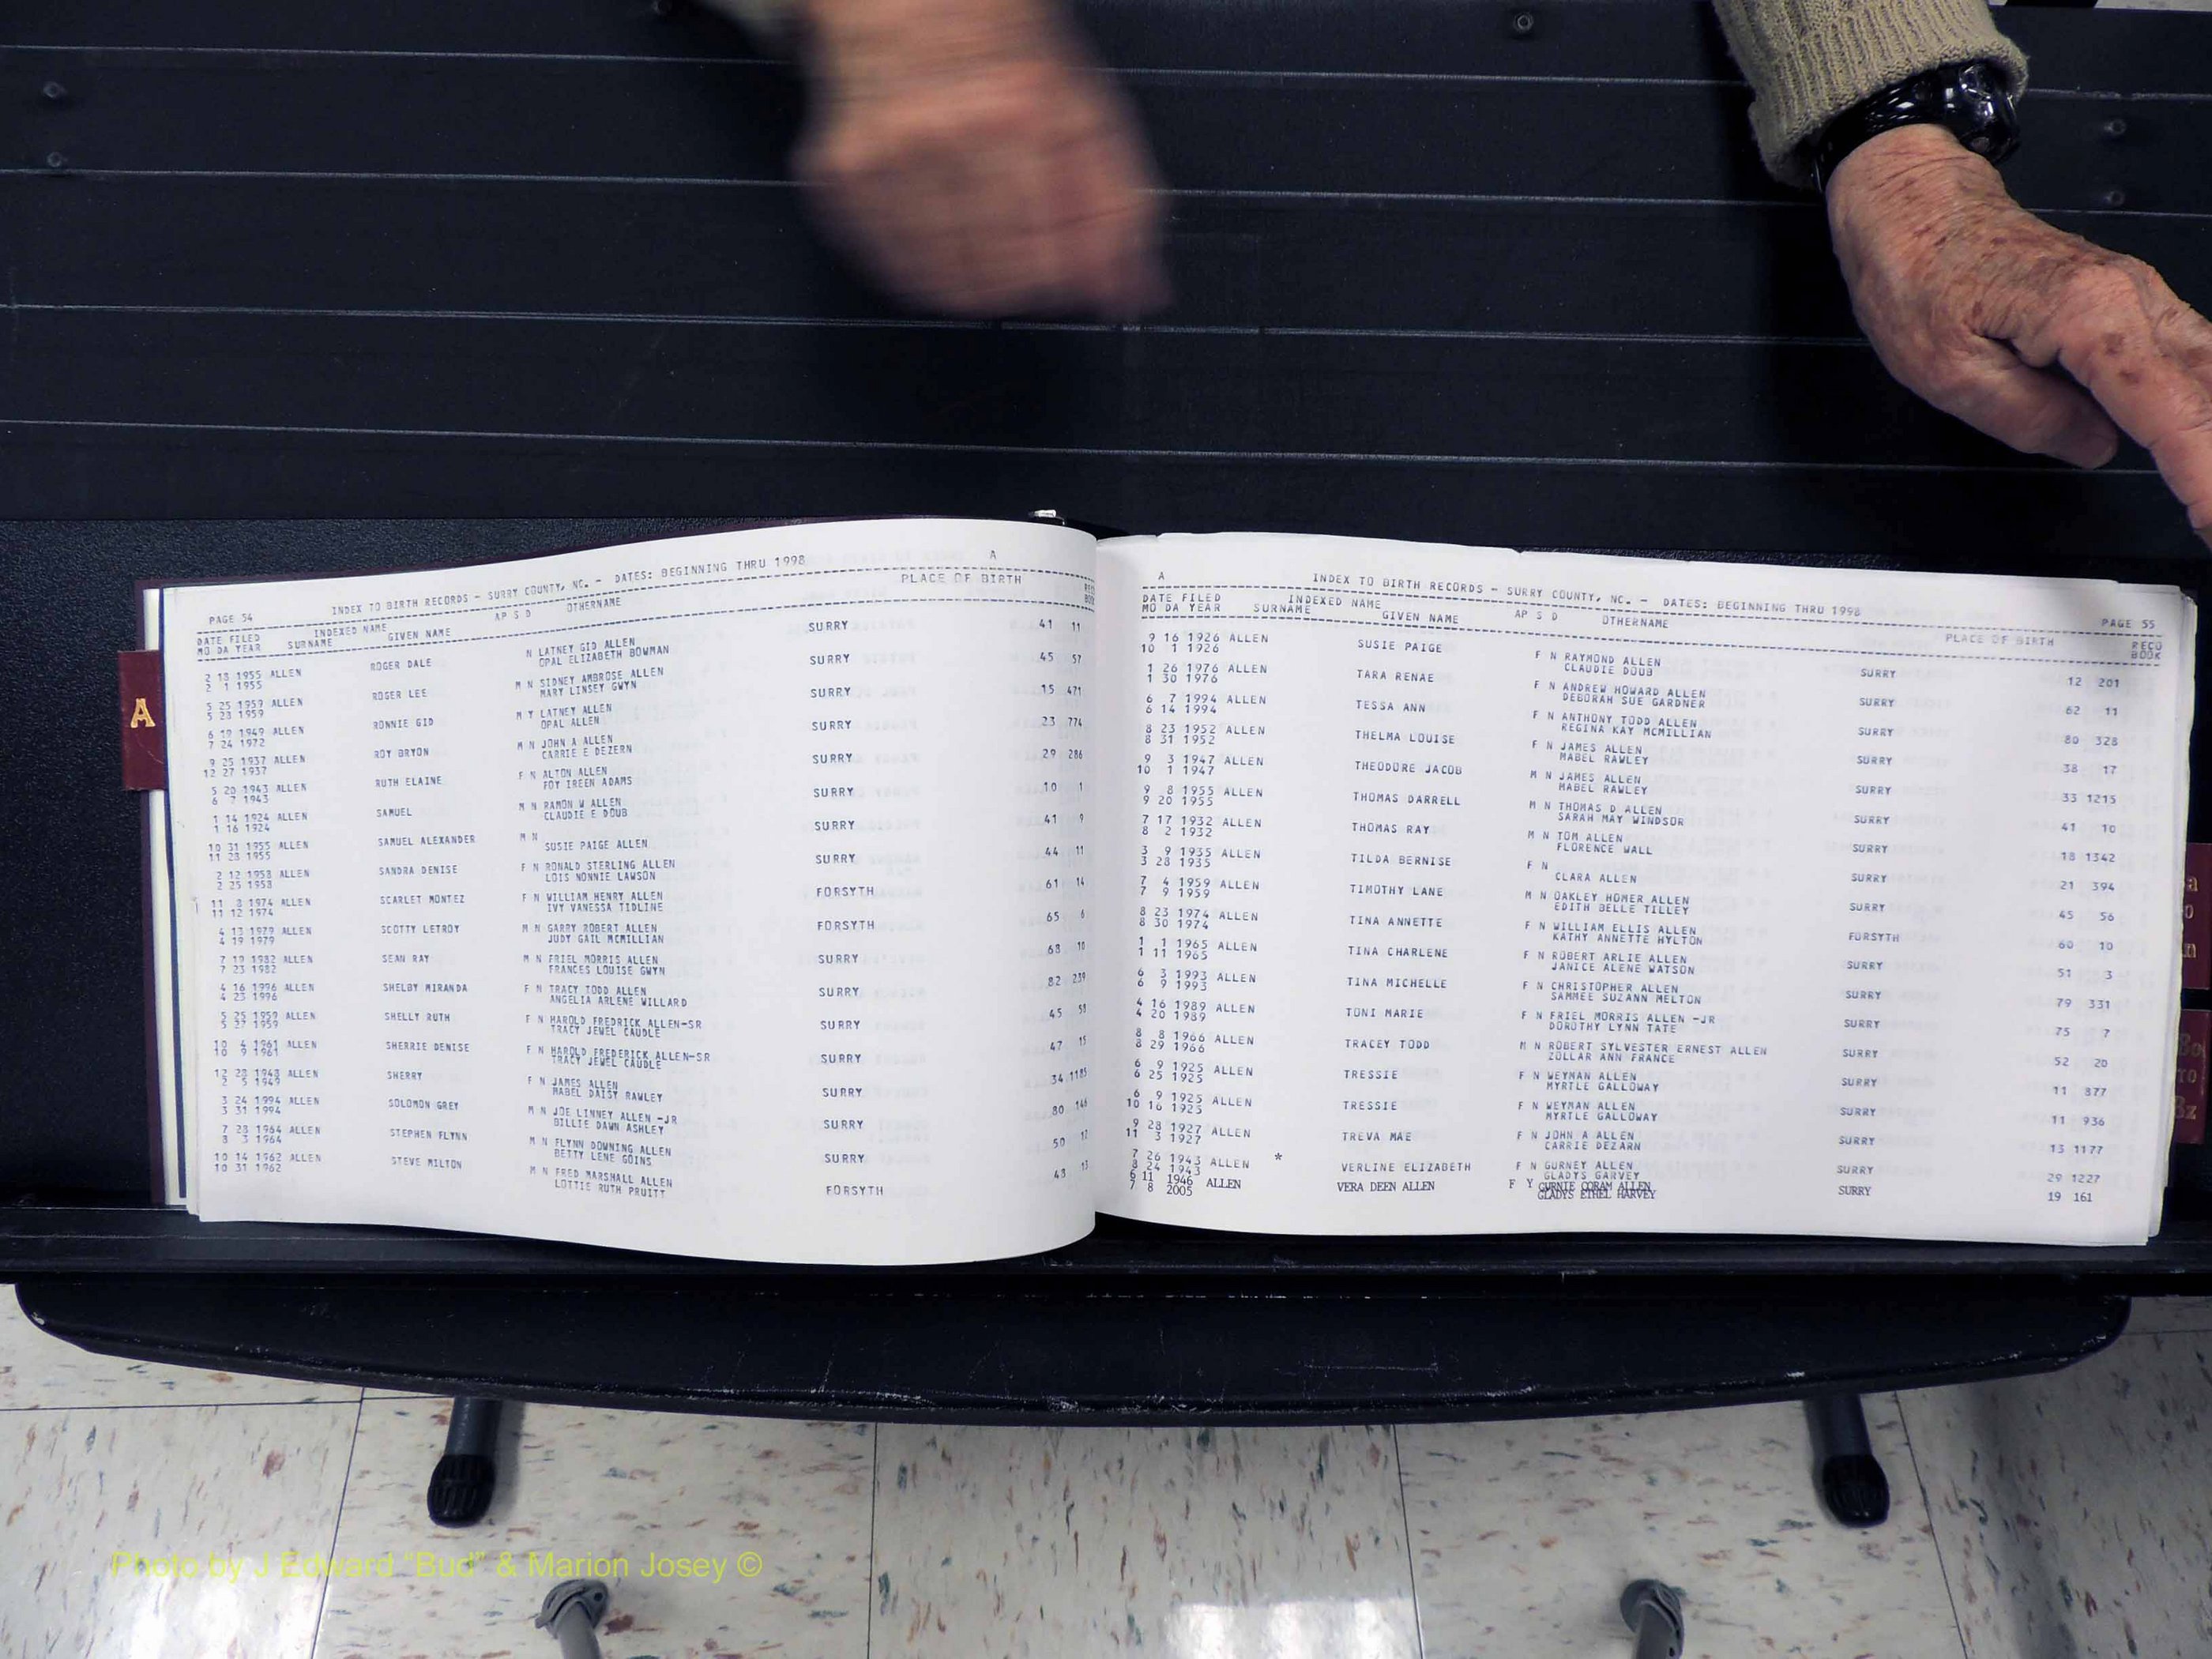 PAGE 54 INDEX TO BIRTH RECORDS - SURRY COUNTY, NC. - DATES: BEGINNING THRU 1998 A
DATE FILED INDEXED NAME AP S D OTHERNAME PLACE OF BIRTH
MO DA YEAR SURNAME GIVEN NAME BOOK
2 18 1955 ALLEN ROGER DALE N LATNEY GID ALLEN SURRY 41 11
2 1 1955 OPAL ELIZABETH BOWMAN
5 25 1959 ALLEN ROGER LEE M N SIDNEY AMBROSE ALLEN SURRY 45 57
5 28 1959 MARY LINSEY GWYN
6 19 1949 ALLEN RONNIE GID M Y LATNEY ALLEN SURRY 15 471
7 24 1972 OPAL ALLEN
9 25 1937 ALLEN ROY BRYON M N JOHN A ALLEN SURRY 23 774
12 27 1937 CARRIE E DEZERN
5 20 1943 ALLEN RUTH ELAINE F N ALTON ALLEN SURRY 29 286
6 7 1943 FOY IREEN ADAMS
1 14 1924 ALLEN SAMUEL M N RAMON W ALLEN SURRY 10 1
1 16 1924 CLAUDIE E DOUB
10 31 1955 ALLEN SAMUEL ALEXANDER M N SURRY 41 9
11 28 1955 SUSIE PAIGE ALLEN
2 12 1958 ALLEN SANDRA DENISE F N RONALD STERLING ALLEN SURRY 44 11
2 25 1958 LOIS NONNIE LAWSON
11 8 1974 ALLEN SCARLET MONTEZ F N WILLIAM HENRY ALLEN FORSYTH 61 14
11 12 1974 IVY VANESSA TIDLINE
4 13 1979 ALLEN SCOTTY LETROY M N GARRY ROBERT ALLEN FORSYTH 65 6
4 19 1979 JUDY GAIL MCMILLIAN
7 19 1982 ALLEN SEAN RAY M N FRIEL MORRIS ALLEN SURRY 68 10
7 23 1982 FRANCES LOUISE GWYN
4 16 1996 ALLEN SHELBY MIRANDA F N TRACY TODD ALLEN SURRY 82 239
4 23 1996 ANGELIA ARLENE WILLARD
5 25 1959 ALLEN SHELLY RUTH F N HAROLD FREDRICK ALLEN-SR SURRY 45 58
5 27 1959 TRACY JEWEL CAUDLE
10 4 1961 ALLEN SHERRIE DENISE F N HAROLD FREDERICK ALLEN-SR SURRY 47 15
10 9 1961 TRACY JEWEL CAUDLE
12 28 1948 ALLEN SHERRY F N JAMES ALLEN SURRY 34 1185
2 5 1949 MABEL DAISY RAWLEY
3 24 1994 ALLEN SOLOMON GREY M N JOE LINNEY ALLEN -JR SURRY 80 146
3 31 1994 BILLIE DAWN ASHLEY
7 28 1964 ALLEN STEPHEN FLYNN M N FLYNN DOWNING ALLEN SURRY 50 12
8 3 1964 BETTY LENE GOINS
10 14 1962 ALLEN STEVE MILTON M N FRED MARSHALL ALLEN FORSYTH 48 13
10 31 1962 LOTTIE RUTH PRUITT
A INDEX TO BIRTH RECORDS - SURRY COUNTY, NC. - DATES: BEGINNING THRU 1998 PAGE 55
DATE FILED INDEXED NAME AP S D OTHERNAME PLACE OF BIRTH RECO
MO DA YEAR SURNAME GIVEN NAME BOOK
9 16 1926 ALLEN SUSIE PAIGE F N RAYMOND ALLEN SURRY 12 201
10 1 1926 CLAUDIE DOUB
1 26 1976 ALLEN TARA RENAE F N ANDREW HOWARD ALLEN SURRY 62 11
1 30 1976 DEBORAH SUE GARDNER
6 7 1994 ALLEN TESSA ANN F N ANTHONY TODD ALLEN SURRY 80 328
6 14 1994 REGINA KAY MCMILLIAN
8 23 1952 ALLEN THELMA LOUISE F N JAMES ALLEN SURRY 38 17
8 31 1952 MABEL RAWLEY
9 3 1947 ALLEN THEODORE JACOB M N JAMES ALLEN SURRY 33 1215
10 1 1947 MABEL RAWLEY
9 8 1955 ALLEN THOMAS DARRELL M N THOMAS D ALLEN SURRY 41 10
9 20 1955 SARAH MAY WINDSOR
7 17 1932 ALLEN THOMAS RAY M N TOM ALLEN SURRY 18 1342
8 2 1932 FLORENCE WALL
3 9 1935 ALLEN TILDA BERNISE F N SURRY 21 394
3 28 1935 CLARA ALLEN
7 4 1959 ALLEN TIMOTHY LANE M N OAKLEY HOMER ALLEN SURRY 45 56
7 9 1959 EDITH BELLE TILLEY
8 23 1974 ALLEN TINA ANNETTE F N WILLIAM ELLIS ALLEN FORSYTH 60 10
8 30 1974 KATHY ANNETTE HYLTON
1 1 1965 ALLEN TINA CHARLENE F N ROBERT ARLIE ALLEN SURRY 51 3
1 11 1965 JANICE ALENE WATSON
6 3 1993 ALLEN TINA MICHELLE F N CHRISTOPHER ALLEN SURRY 79 331
6 9 1993 SAMMEE SUZANN MELTON
4 16 1989 ALLEN TONI MARIE F N FRIEL MORRIS ALLEN -JR SURRY 75 7
4 20 1989 DOROTHY LYNN TATE
8 8 1966 ALLEN TRACEY TODD M N ROBERT SYLVESTER ERNEST ALLEN SURRY 52 20
8 29 1966 ZOLLAR ANN FRANCE
6 9 1925 ALLEN TRESSIE F N WEYMAN ALLEN SURRY 11 877
6 25 1925 MYRTLE GALLOWAY
6 9 1925 ALLEN TRESSIE F N WEYMAN ALLEN SURRY 11 936
10 16 1925 MYRTLE GALLOWAY
9 28 1927 ALLEN TREVA MAE F N JOHN A ALLEN SURRY 13 1177
11 3 1927 CARRIE DEZARN
7 26 1943 ALLEN * VERLINE ELIZABETH F N GURNEY ALLEN SURRY 29 1227
8 24 1943 GLADYS GARVEY
6 11 1946 ALLEN VERA DEEN ALLEN F Y GURNIE CORAM ALLEN SURRY 19 161
7 8 2005 GLADYS ETHEL HARVEY
A
Photo by J Edward "Bud" & Marion Josey ©